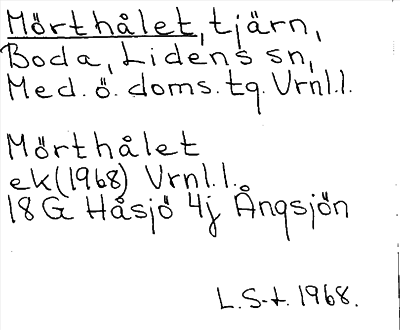 Mörthålet, tjärn,
Boda, Lidens sn,
Med. ö. doms. tg. Vrnl.l.
Mörthålet
ek (1968) Vrnl.l.
18 G Håsjö 4j Ångsjön
L.S-t. 1968.